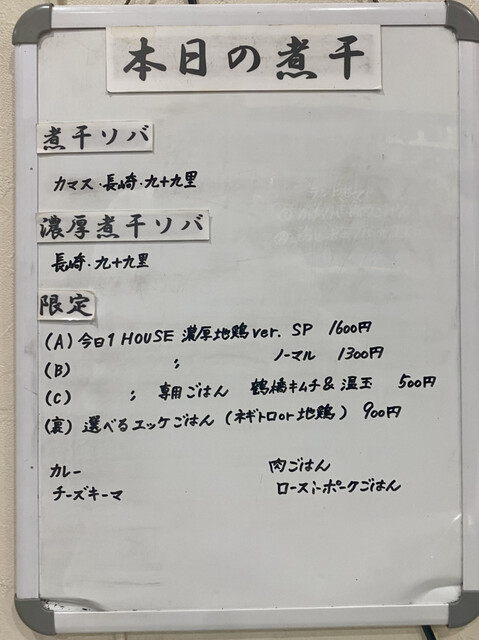 本日の煮干
煮干ソバ
カマス・長崎・九十九里
濃厚煮干ソバ
長崎・九十九里
限定
(A) 今日1 HOUSE 濃厚地鶏 ver. SP 1600円
(B) 〃 ノーマル 1300円
(C) 〃 専用ごはん 鶴橋キムチ & 温玉 500円
(裏) 選べるエッケごはん (ネギトロor地鶏) 900円
カレー 肉ごはん
チーズキーマ ローストポークごはん